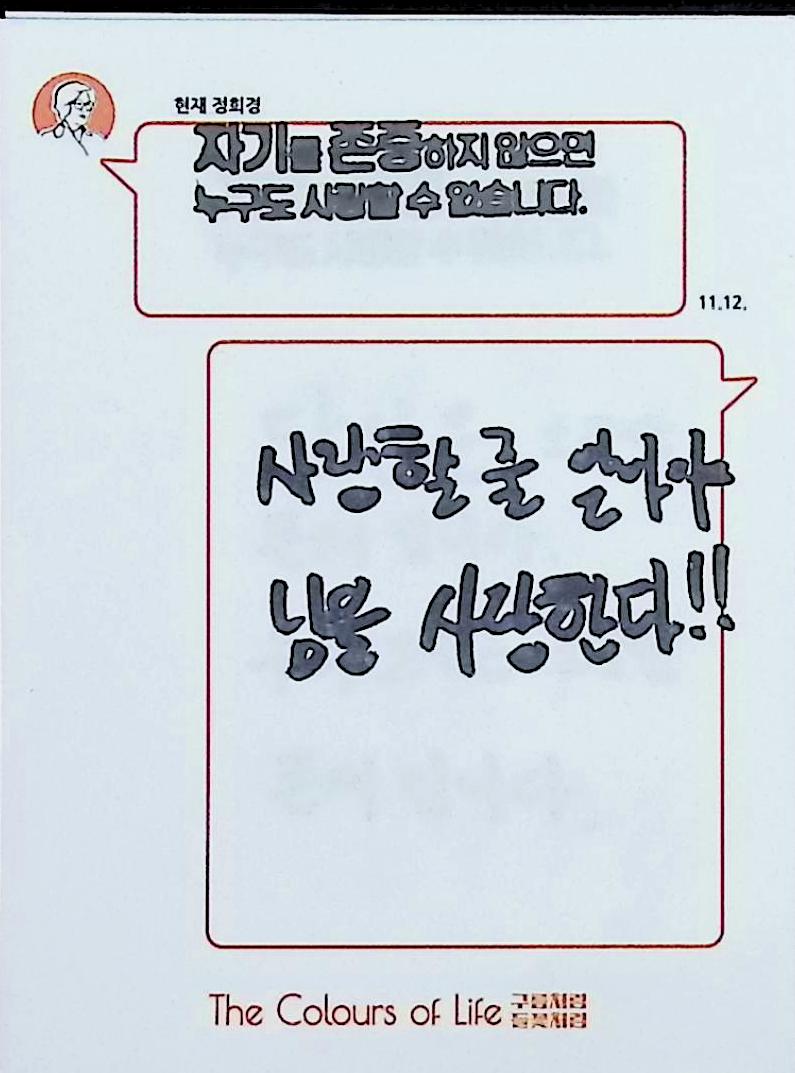 현재 정희경
자기를 존중하지 않으면
누구도 사랑할 수 없습니다.
11.12.
사랑할 줄 알아야
님을 사랑한다!!
The Colours of Life 구름처럼
들꽃처럼